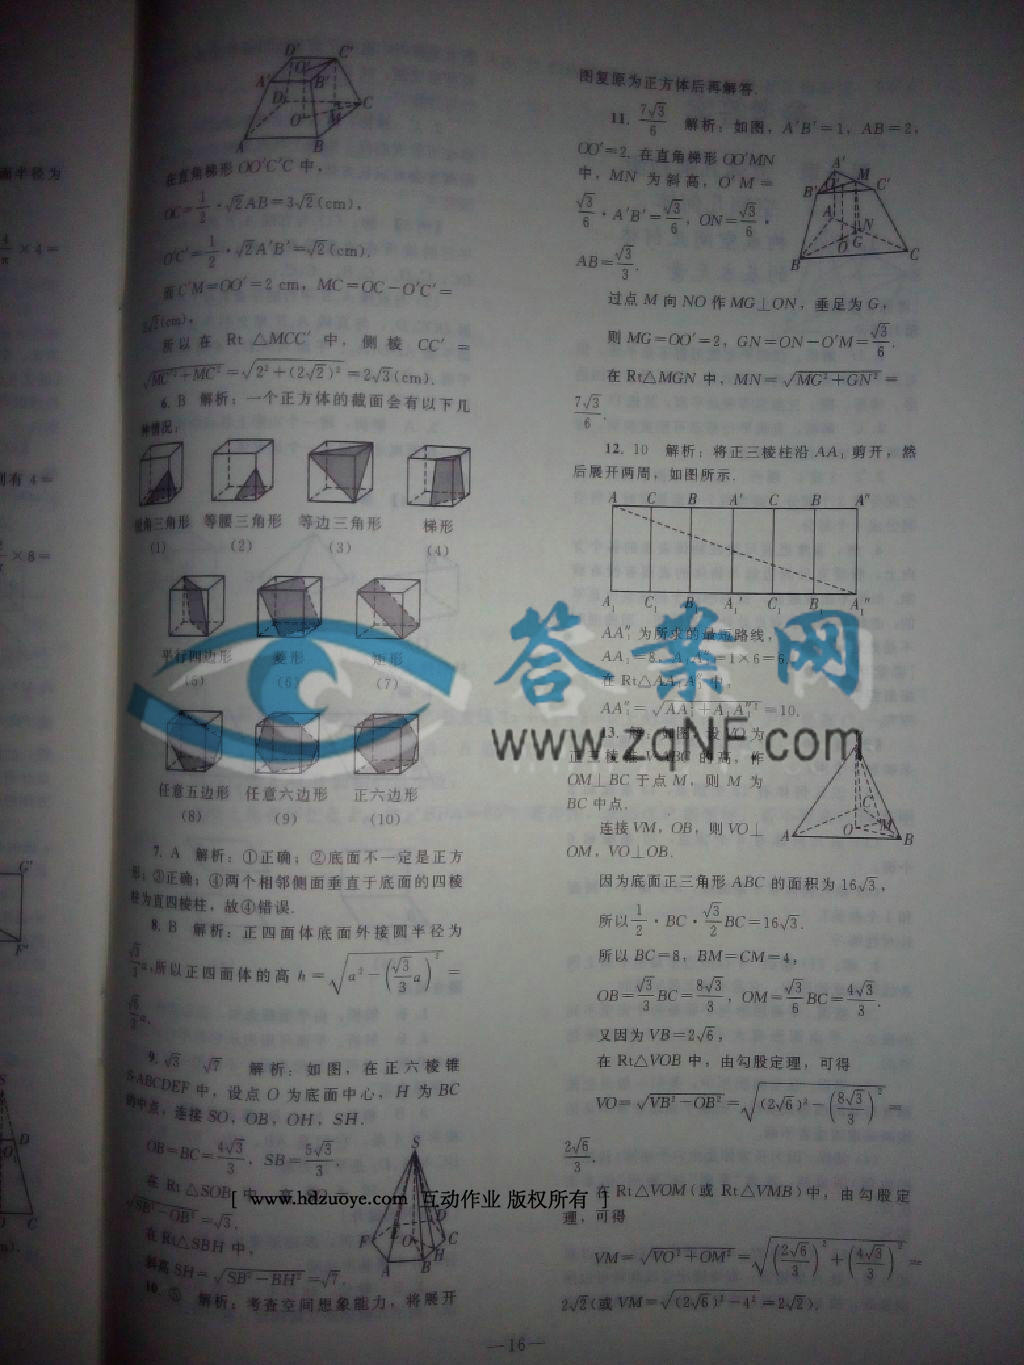 在直角梯形 OO′C′C 中，
OC=1/2·√2AB=3√2(cm)，
O′C′=1/2·√2A′B′=√2(cm).
而C′M=OO′=2 cm，MC=OC−O′C′=
2√2(cm)，
所以在 Rt △MCC′ 中，侧棱 CC′=
√(MC′²+MC²)=√(2²+(2√2)²)=2√3(cm).
6. B 解析：一个正方体的截面会有以下几
种情况：
直角三角形 等腰三角形 等边三角形 梯形
(1) (2) (3) (4)
平行四边形 菱形 矩形
(5) (6) (7)
任意五边形 任意六边形 正六边形
(8) (9) (10)
7. A 解析：①正确；②底面不一定是正方
形；③正确；④两个相邻侧面垂直于底面的四棱
柱为直四棱柱，故④错误.
8. B 解析：正四面体底面外接圆半径为
√3/3a,所以正四面体的高 h=√(a²−(√3/3a)²)=
√6/3a.
9. √3 √7 解析：如图，在正六棱锥
S-ABCDEF 中，设点 O 为底面中心，H 为 BC
的中点，连接 SO，OB，OH，SH.
OB=BC=4√3/3，SB=5√3/3.
在 Rt △SOB 中，
√(SB²−OB²)=√3.
在 Rt△SBH 中，
斜高 SH=√(SB²−BH²)=√7.
10. ⑤ 解析：考查空间想象能力，将展开
图复原为正方体后再解答.
11. 7√3/6 解析：如图，A′B′=1，AB=2，
OO′=2. 在直角梯形 OO′MN
中，MN 为斜高，O′M=
√3/6·A′B′=√3/6，ON=√3/6·
AB=√3/3.
过点 M 向 NO 作 MG⊥ON，垂足为 G，
则 MG=OO′=2，GN=ON−O′M=√3/6.
在 Rt△MGN 中，MN=√(MG²+GN²)=
7√3/6.
12. 10 解析：将正三棱柱沿 AA₁ 剪开，然
后展开两周，如图所示.
A C B A′ C B A″
A₁ C₁ B₁ A₁′ C₁ B₁ A₁″
AA₁″ 为所求的最短路线，
AA₁=8，A₁A₁″=1×6=6.
在 Rt△AA₁A₁″ 中，
AA₁″=√(AA₁²+A₁A₁″²)=10.
13. 解：如图，设 VO 为
正三棱锥 V-ABC 的高，作
OM⊥BC 于点 M，则 M 为
BC 中点，
连接 VM，OB，则 VO⊥
OM，VO⊥OB.
因为底面正三角形 ABC 的面积为 16√3，
所以 1/2·BC·√3/2BC=16√3.
所以 BC=8，BM=CM=4，
OB=√3/3BC=8√3/3，OM=√3/6BC=4√3/3.
又因为 VB=2√6，
在 Rt△VOB 中，由勾股定理，可得
VO=√(VB²−OB²)=√((2√6)²−(8√3/3)²)=
2√6/3.
在 Rt△VOM(或 Rt△VMB)中，由勾股定
理，可得
VM=√(VO²+OM²)=√((2√6/3)²+(4√3/3)²)=
2√2(或 VM=√((2√6)²−4²)=2√2).
—16—
答案网
www.zqNF.com
[ www.hdzuoye.com 互动作业 版权所有 ]